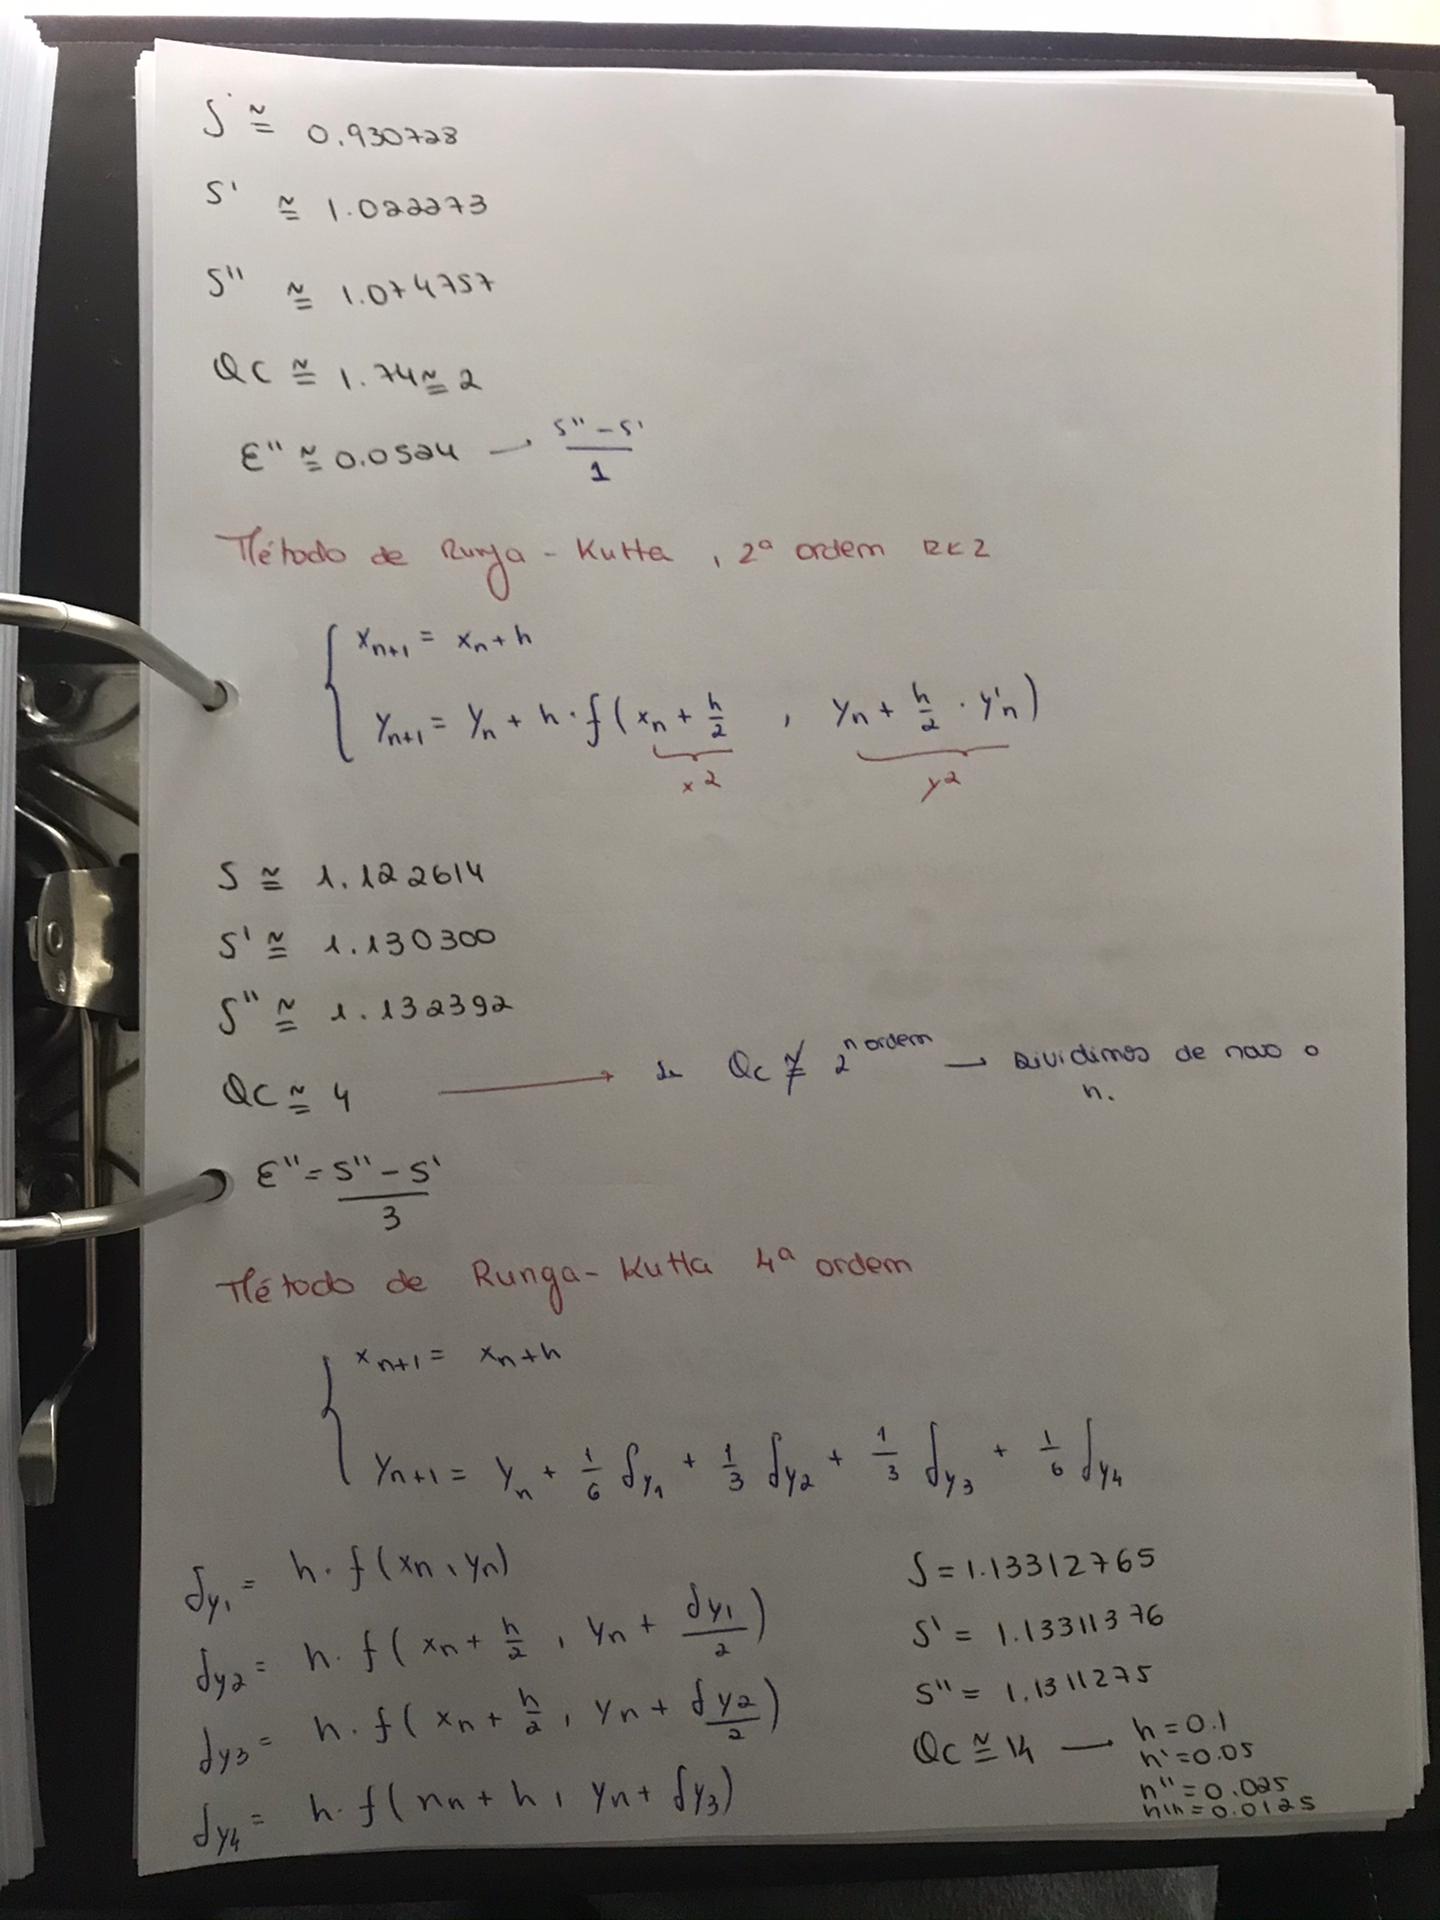 S ≅ 0.930728
S' ≅ 1.022273
S'' ≅ 1.074757
QC ≅ 1.74 ≅ 2
ε'' ≅ 0.0524 → (S'' - S')/1
Método de Runga - Kutta, 2ª ordem RK2
{ xn+1 = xn + h
yn+1 = yn + h · f(xn + h/2 , yn + h/2 · y'n)
x2 y2
S ≅ 1.122614
S' ≅ 1.130300
S'' ≅ 1.132392
QC ≅ 4 → se Qc ≇ 2^n ordem → Dividimos de novo o
h.
ε'' = (S'' - S')/3
Método de Runga - Kutta 4ª ordem
{ xn+1 = xn + h
yn+1 = yn + 1/6 δy1 + 1/3 δy2 + 1/3 δy3 + 1/6 δy4
δy1 = h · f(xn, yn)
δy2 = h · f(xn + h/2 , yn + δy1/2)
δy3 = h · f(xn + h/2 , yn + δy2/2)
δy4 = h · f(xn + h , yn + δy3)
S = 1.13312765
S' = 1.13311376
S'' = 1.1311275
Qc ≅ 14 → h = 0.1
h' = 0.05
h'' = 0.025
h''' = 0.0125